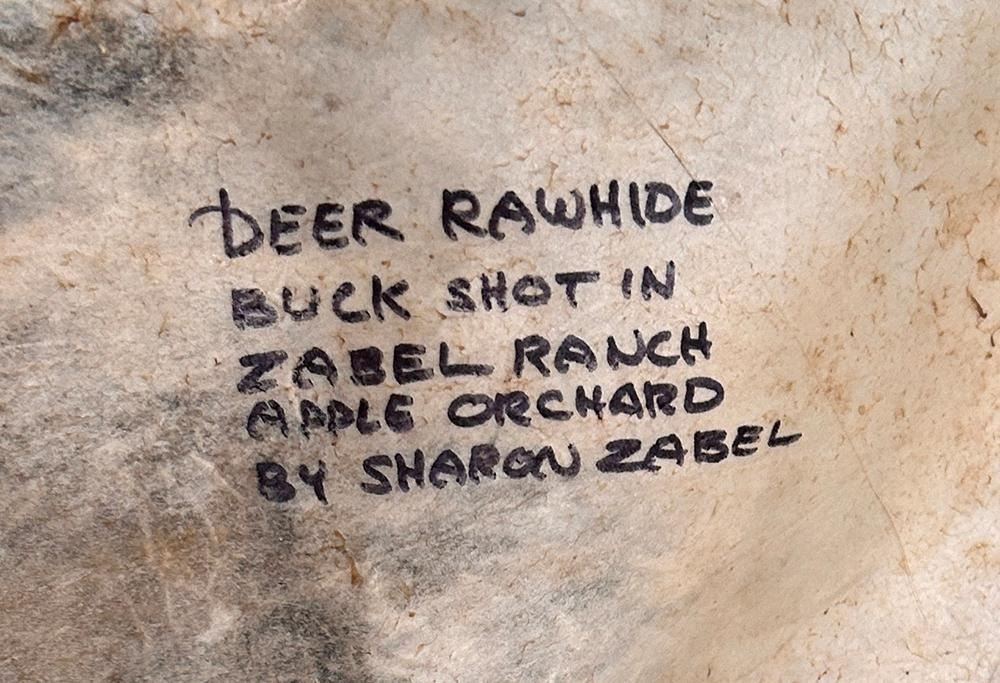 DEER RAWHIDE
BUCK SHOT IN
ZABEL RANCH
APPLE ORCHARD
BY SHARON ZABEL